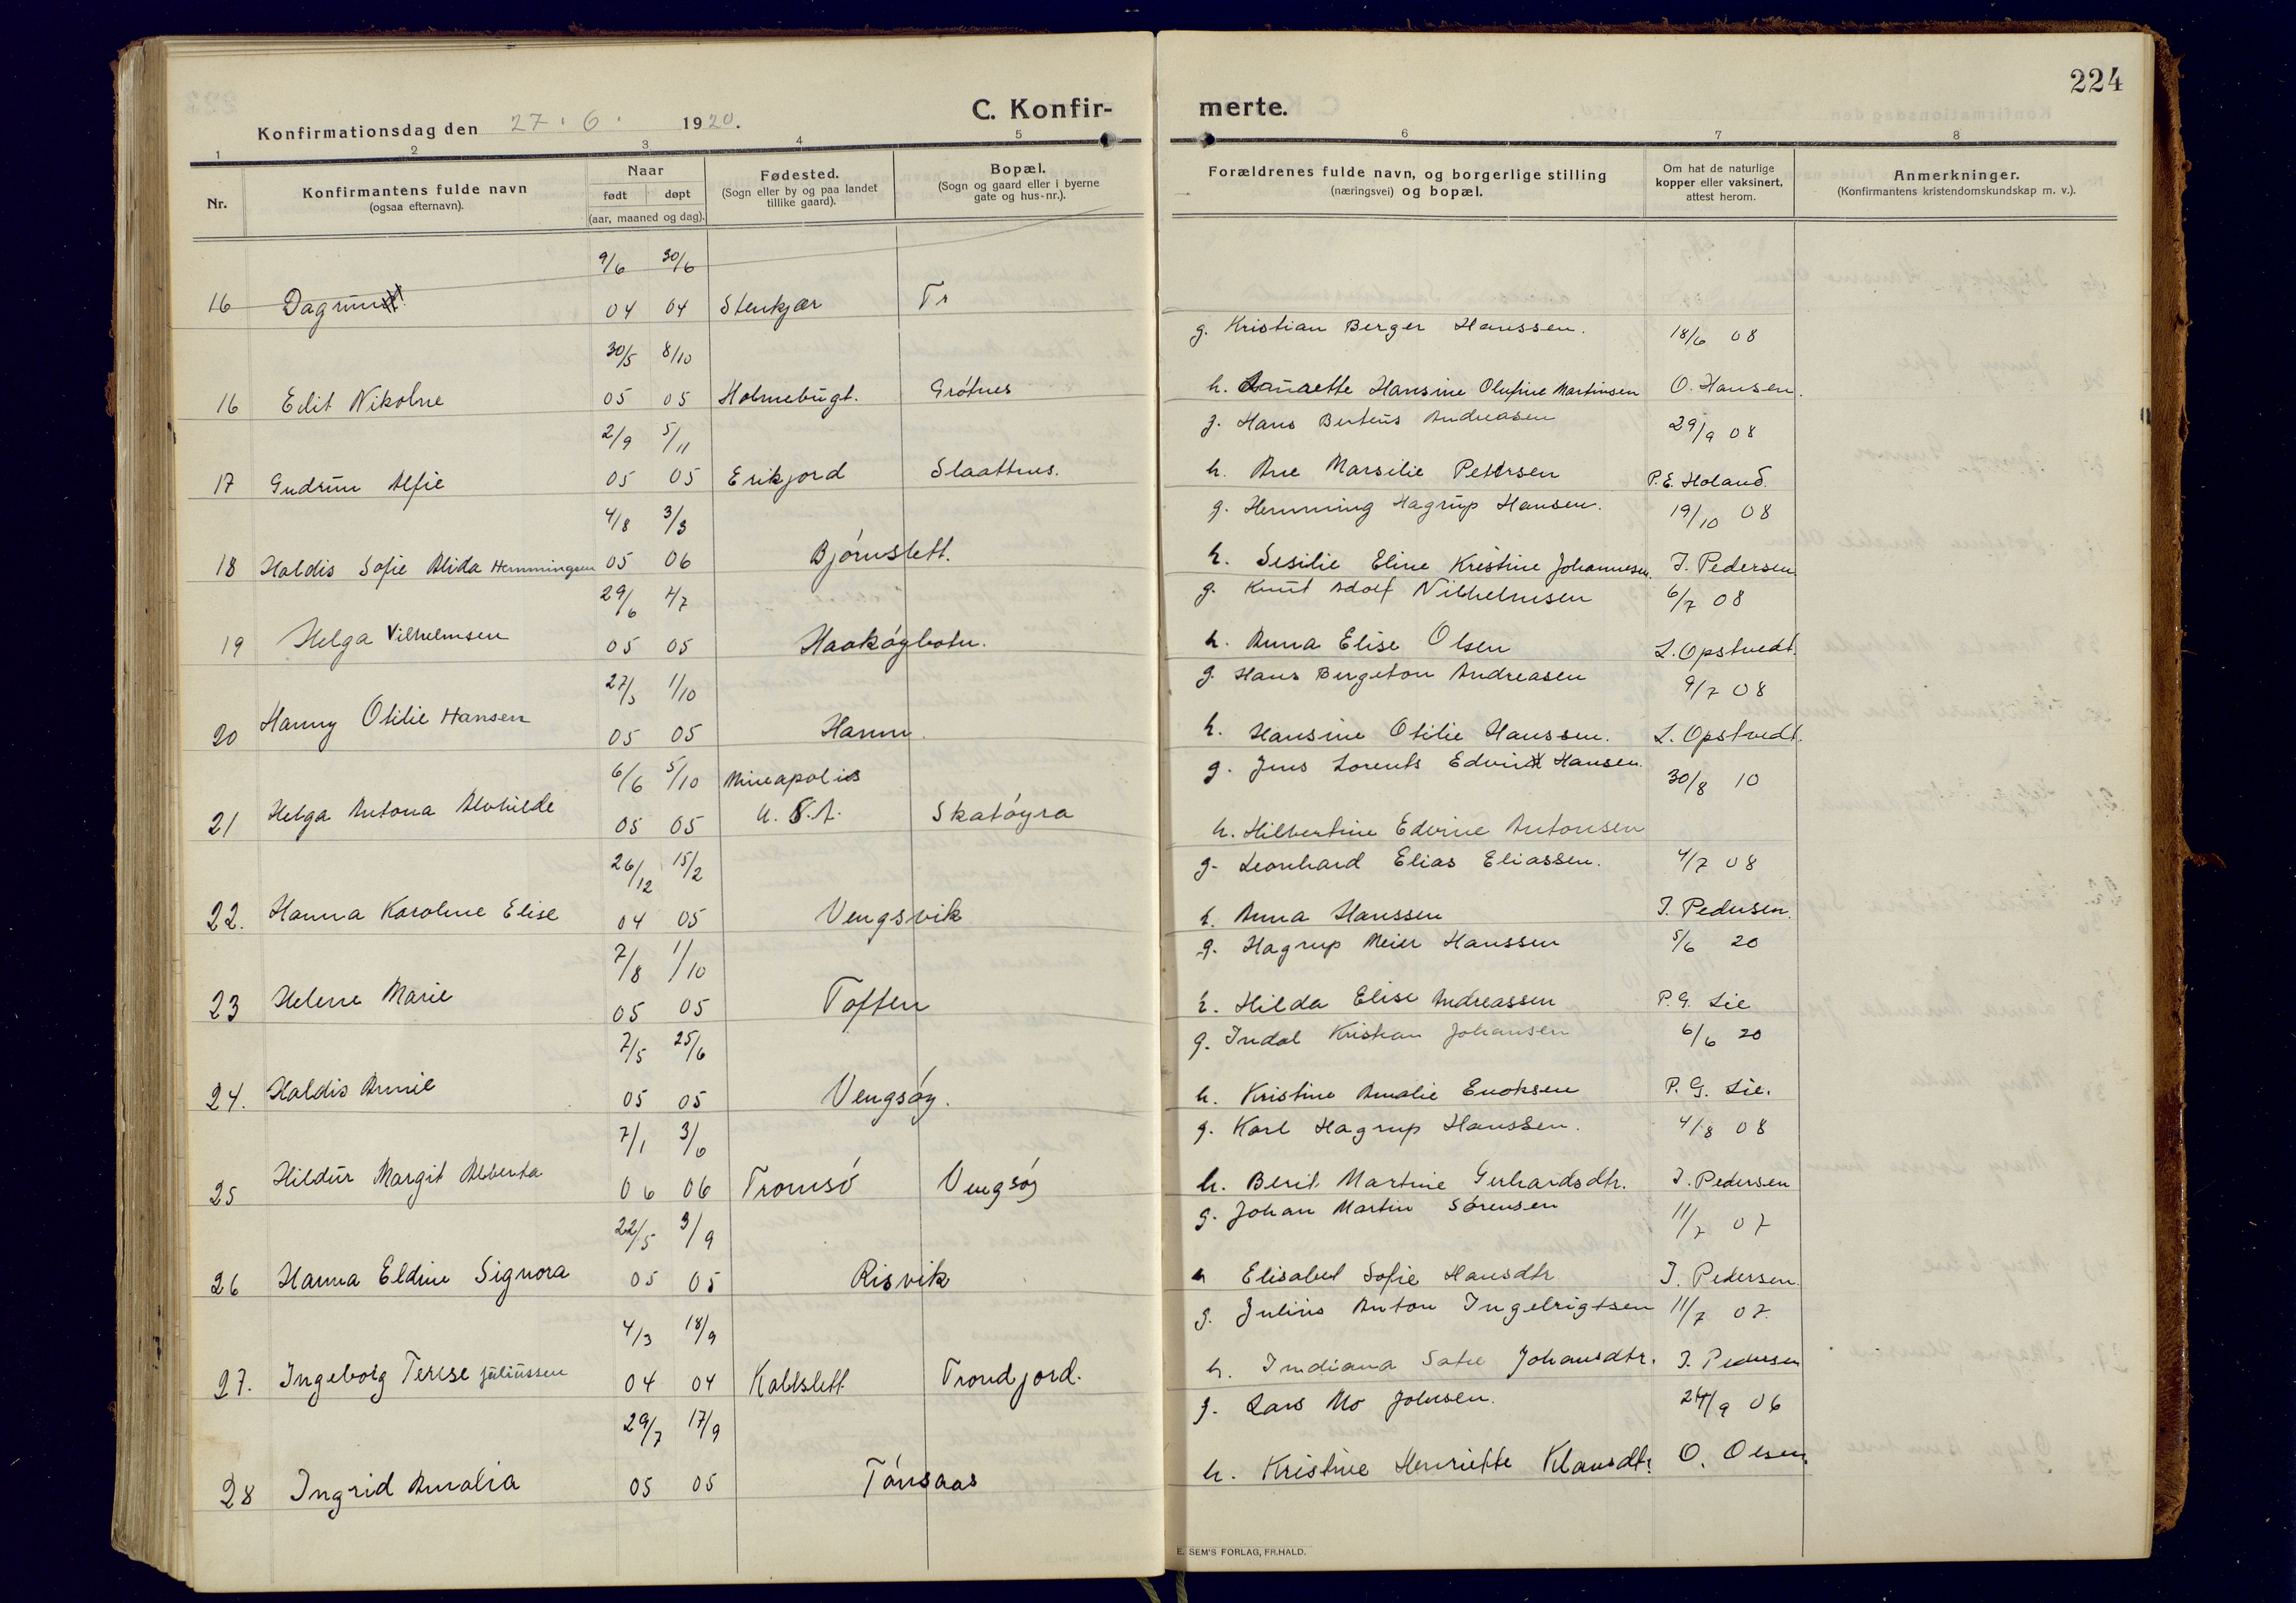 224
C. Konfir-
merte.
Konfirmationsdag den 27. 6. 1920.
1
2
3
4
5
6
7
8
Nr.
Konfirmantens fulde navn
(ogsaa efternavn).
Naar
født døpt
(aar, maaned og dag).
Fødested.
(Sogn eller by og paa landet
tillike gaard).
Bopæl.
(Sogn og gaard eller i byerne
gate og hus-nr.).
Forældrenes fulde navn, og borgerlige stilling
(næringsvei) og bopæl.
Om hat de naturlige
kopper eller vaksinert,
attest herom.
Anmerkninger.
(Konfirmantens kristendomskundskap m. v.).
9/6 30/6
16 Dagrun 04 04 Stenkjær Tr
g. Kristian Berger Hanssen. 18/6 08
30/5 8/10
16 Edit Nikoline 05 05 Holmebugt. Grótnes
h. Hansine Olufine Martinsen O. Hansen.
g. Hans Berteus Andreasen 29/9 08
2/9 5/11
17 Gudrun Alfie 05 05 Erikjord Slaattnes.
h. Ane Marsilie Petersen P. E. Holand.
g. Hemming Hagrup Hansen. 19/10 08
4/8 3/3
18 Haldis Sofie Alida Hemmingsen 05 06 Bjórnslett.
h. Sesilie Eline Kristine Johannesen. J. Pedersen
g. Knut Adolf Vilhelmsen 6/7 08
29/6 2/7
19 Helga Vilhelmsen 05 05 Haakóybotn.
h. Anna Elise Olsen L. Opstvedt.
g. Hans Bergeton Andreasen 9/7 08
27/3 1/10
20 Hanny Otilie Hansen 05 05 Hamn.
h. Hansine Otilie Hanssen. L. Opstvedt.
g. Jens Lorents Edvin Hansen. 30/8 10
6/6 5/10 Mineapolis
21 Helga Antona Alvhilde 05 05 U. S. A. Skatóyra
h. Hilbertine Edvine Antonsen
g. Leonhard Elias Eliassen. 4/7 08
26/12 15/2
22. Hanna Karoline Elise 04 05 Vengsvik
h. Anna Hanssen J. Pedersen.
g. Hagrup Meier Hanssen 5/6 20
7/8 1/10
23 Helene Marie 05 05 Toften
h. Hilda Elise Andreassen P. G. Lie
g. Indal Kristian Johansen 6/6 20
7/5 25/6
24. Haldis Annie 05 05 Vengsóy.
h. Kristine Amalie Enoksen P. G. Lie.
g. Karl Hagrup Hanssen. 4/8 08
7/1 3/6
25 Hildur Margit Alberta 06 06 Tromsó Vengsóy
h. Berit Martine Gerhardsdtr. J. Pedersen
g. Johan Martin Sórensen 11/7 07
22/5 3/9
26 Hanna Eldine Signora 05 05 Risvik
h Elisabet Sofie Hansdtr J. Pedersen.
g. Julius Anton Ingebrigtsen 11/7 07.
4/3 18/9
27. Ingeborg Terese Juliussen 04 04 Kalslett. Trondjord.
h. Indiana Sofie Johansdtr. J. Pedersen
g. Lars Mo Johnsen. 24/9 06
29/7 17/9
28 Ingrid Amalia 05 05 Tónsaas
h. Kristine Henriette Klausdtr. O. Olsen.
E. SEM'S FORLAG, FR.HALD.